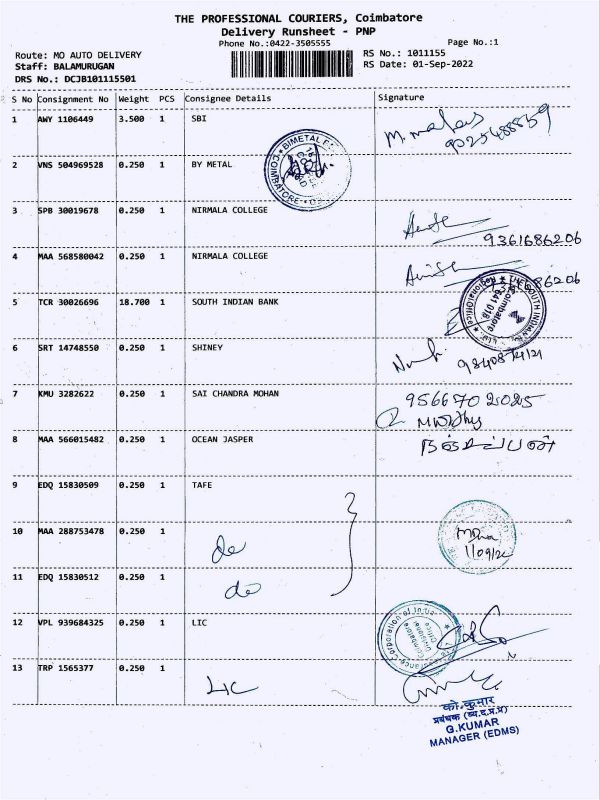 THE PROFESSIONAL COURIERS, Coimbatore
Delivery Runsheet - PNP
Phone No.:0422-3505555 Page No.:1
Route: MO AUTO DELIVERY RS No.: 1011155
Staff: BALAMURUGAN RS Date: 01-Sep-2022
DRS No.: DCJB101115501
S No Consignment No Weight PCS Consignee Details Signature
1 AWY 1106449 3.500 1 SBI
BIMETAL
COIMBATORE
2 VNS 504969528 0.250 1 BY METAL
3 SPB 30019678 0.250 1 NIRMALA COLLEGE
9361686206
4 MAA 568580042 0.250 1 NIRMALA COLLEGE
5 TCR 30026696 18.700 1 SOUTH INDIAN BANK
SOUTH INDIAN
Regional Office
Coimbatore
641 018
6 SRT 14748550 0.250 1 SHINEY
7 KMU 3282622 0.250 1 SAI CHANDRA MOHAN 9566702025
8 MAA 566015482 0.250 1 OCEAN JASPER
9 EDQ 15830509 0.250 1 TAFE
10 MAA 288753478 0.250 1 do
1/09/22
11 EDQ 15830512 0.250 1 do
12 VPL 939684325 0.250 1 LIC
Corporation of India
Coimbatore
Divisional
Office
13 TRP 1565377 0.250 1 LIC
को.कुमार
प्रबंधक
G.KUMAR
MANAGER (EDMS)